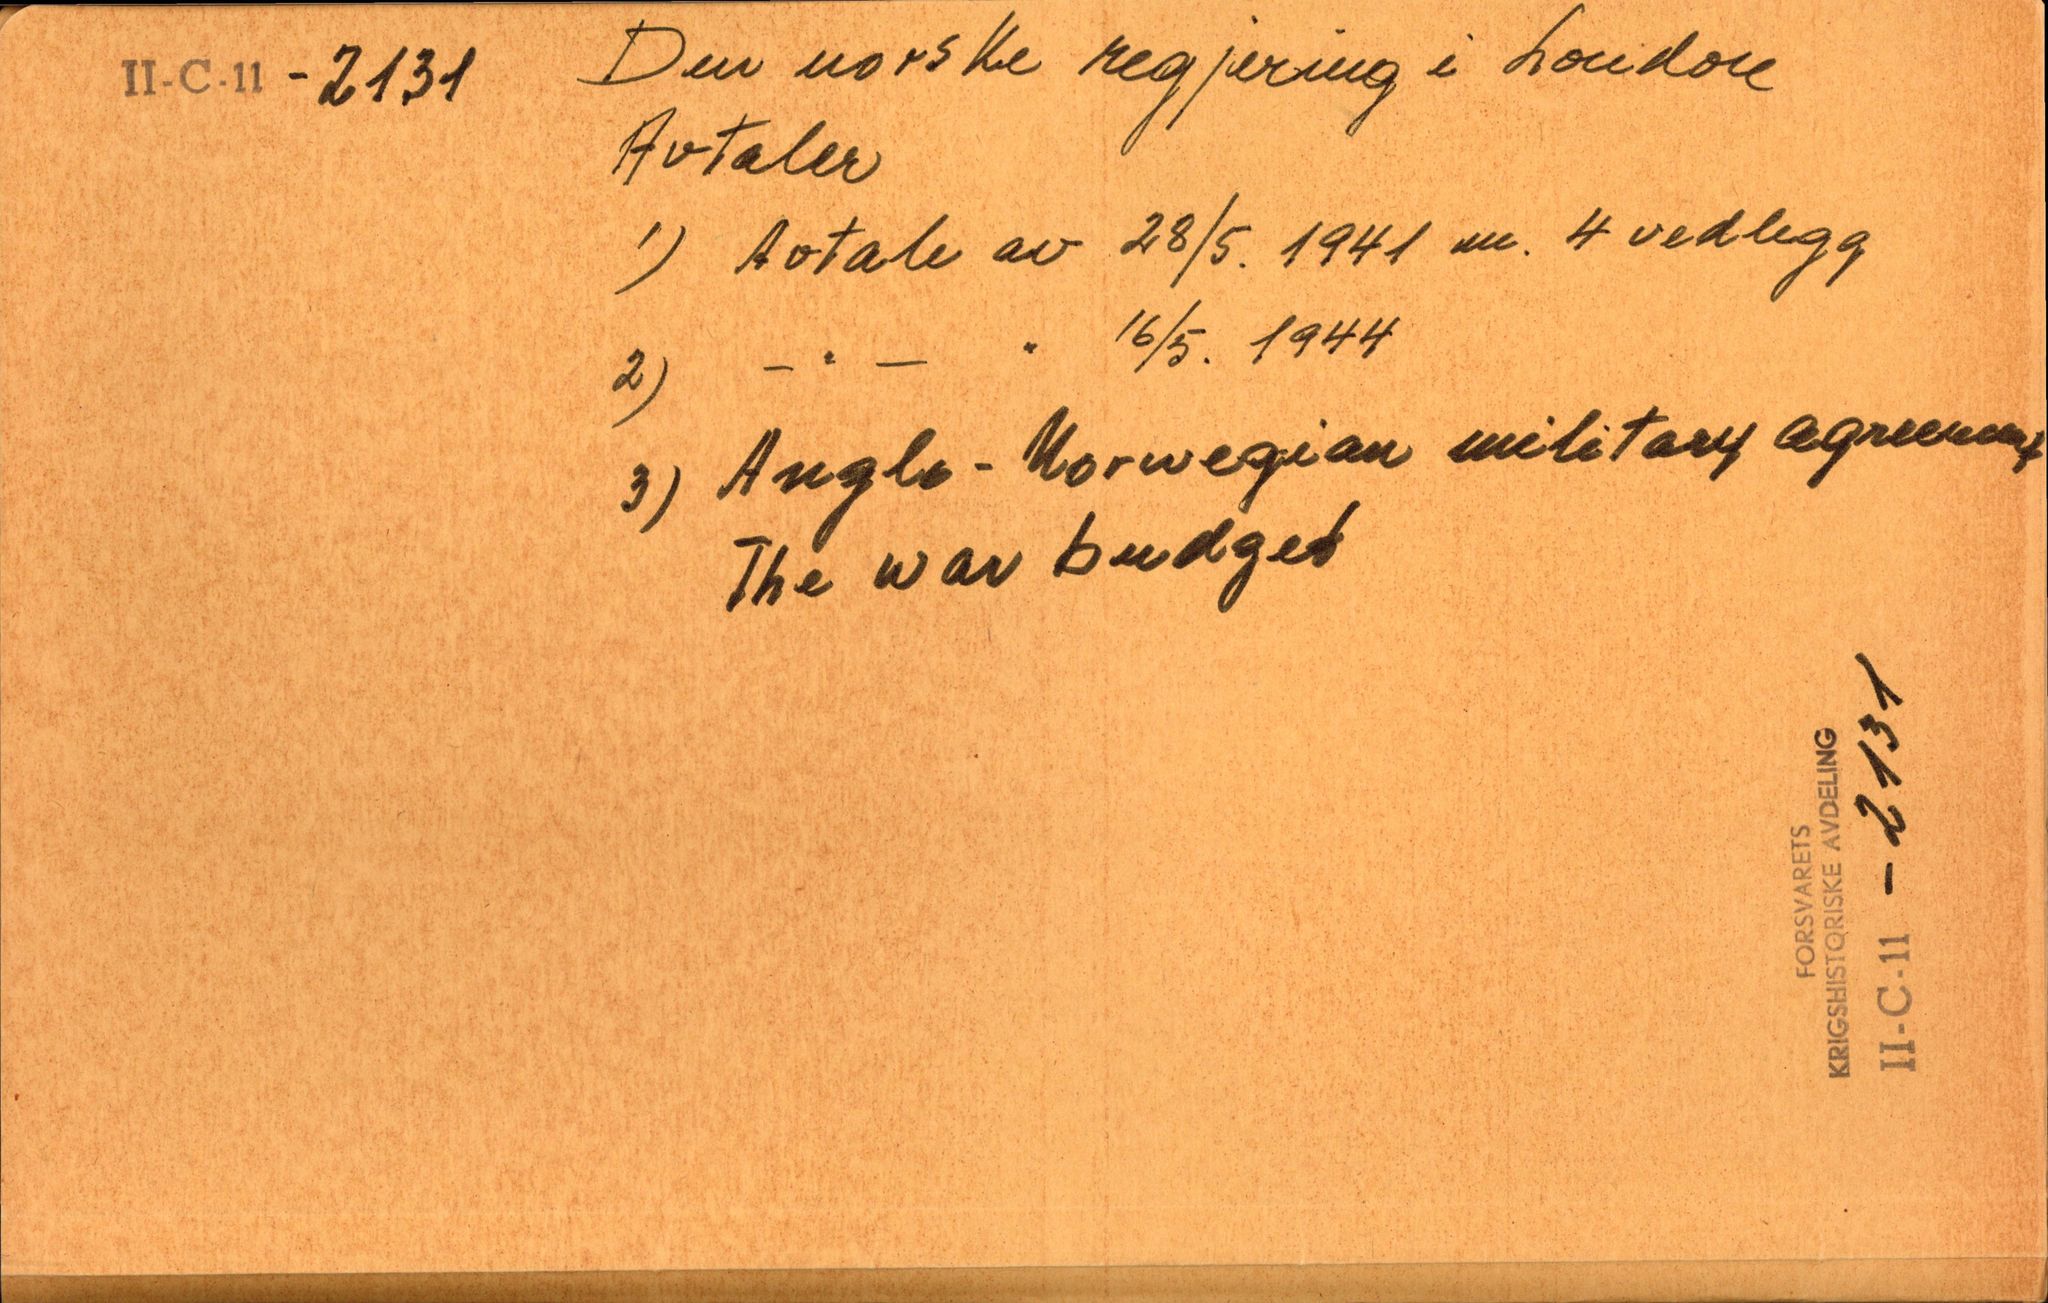 II-C-11 - 2131
Den norske regjering i London
Avtaler
1) Avtale av 28/5. 1941 m. 4 vedlegg
2) - " - " 16/5. 1944
3) Anglo-Norwegian military agreement
The war budget
FORSVARETS
KRIGSHISTORISKE AVDELING
II-C-11 - 2131